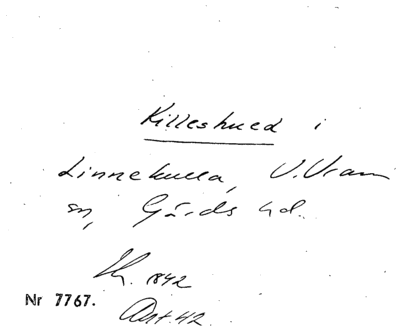 Killeshued i
Linnekulla, V. Vram
sn, Gärds hd.
1842
Nr 7767.